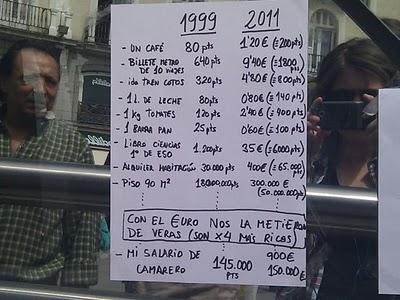 1999 2011
- UN CAFÉ 80 pts 1'20 € (=200 pts)
- BILLETE METRO DE 10 VIAJES 640 pts 9'40 € (=1800 pts)
- ida TREN COTOS 320 pts 4'80 € (=800 pts)
- 1 L. DE LECHE 80 pts 0'80 € (=140 pts)
- 1 Kg TOMATES 120 pts 2'40 € (=400 pts)
- 1 BARRA PAN 25 pts 0'60 € (=100 pts)
- LIBRO CIENCIAS 1º DE ESO 1.200 pts 35 € (=6000 pts)
- ALQUILER HABITACIÓN 30.000 pts 400 € (=65.000 pts)
- PISO 90 M² pts 300.000 € (50.000.000 pts)
CON EL EURO NOS LA METIERON
DE VERAS (SON X4 MÁS RICOS)
- MI SALARIO DE CAMARERO 145.000 PTS 900 € 150.000